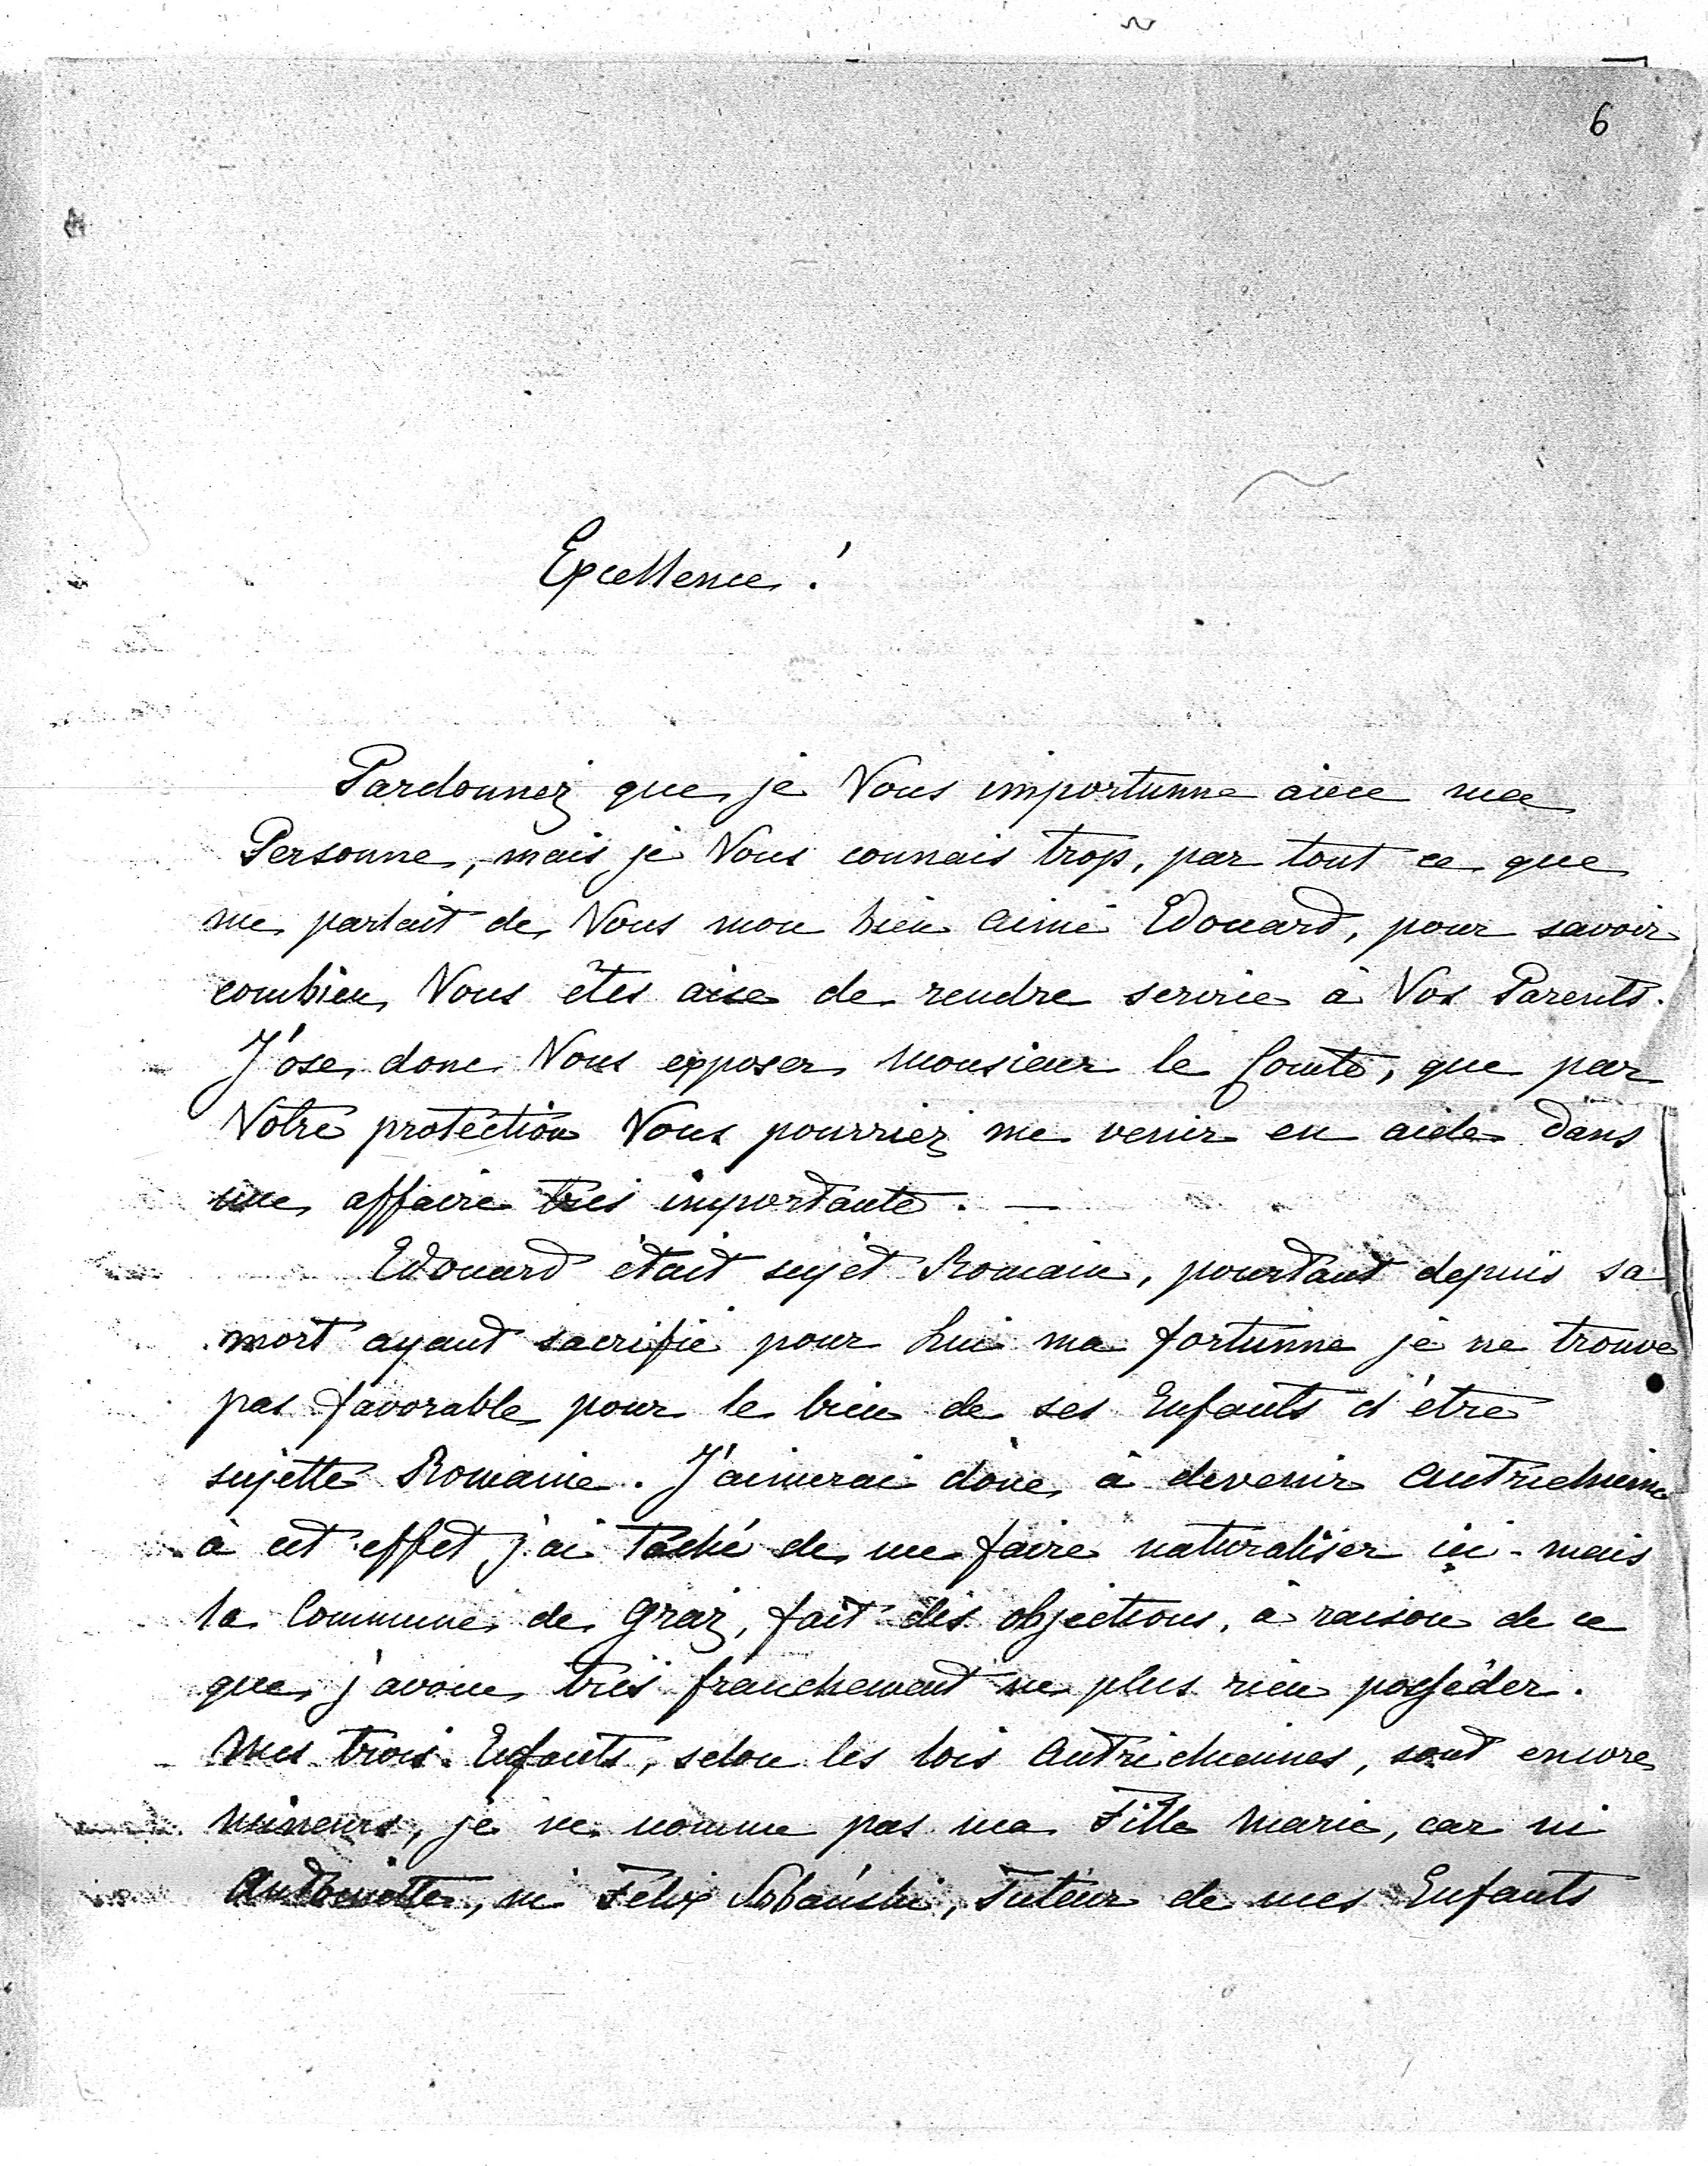 6
Excellence !
Pardonnez que je Vous importunne avec ma
Personne, mais je Vous connais trop, par tout ce que
me parlait de Vous mon bien aimé Edouard, pour savoir
combien Vous êtes aise de rendre service à Vos Parents.
J'ose donc Vous exposer Monsieur le Comte, que par
Votre protection Vous pourriez me venir en aide dans
une affaire très importante. —
Edouard était sujet Romain, pourtant depuis sa
mort ayant sacrifié pour Lui ma fortunne je ne trouve
pas favorable pour le bien de ses Enfants d'être
sujette Romaine. J'aimerai donc à devenir Autrichienne
à cet effet j'ai taché de me faire naturaliser ici - mais
la Commune de Graz, fait des objections, à raison de ce
que j'avoue très franchement ne plus rien posséder.
Mes trois Enfants, selon les lois Autrichiennes, sont encore
mineurs, je ne nomme pas ma Fille Marie, car ni
Antoinette, ni Félix Sobański, Tuteur de mes Enfants